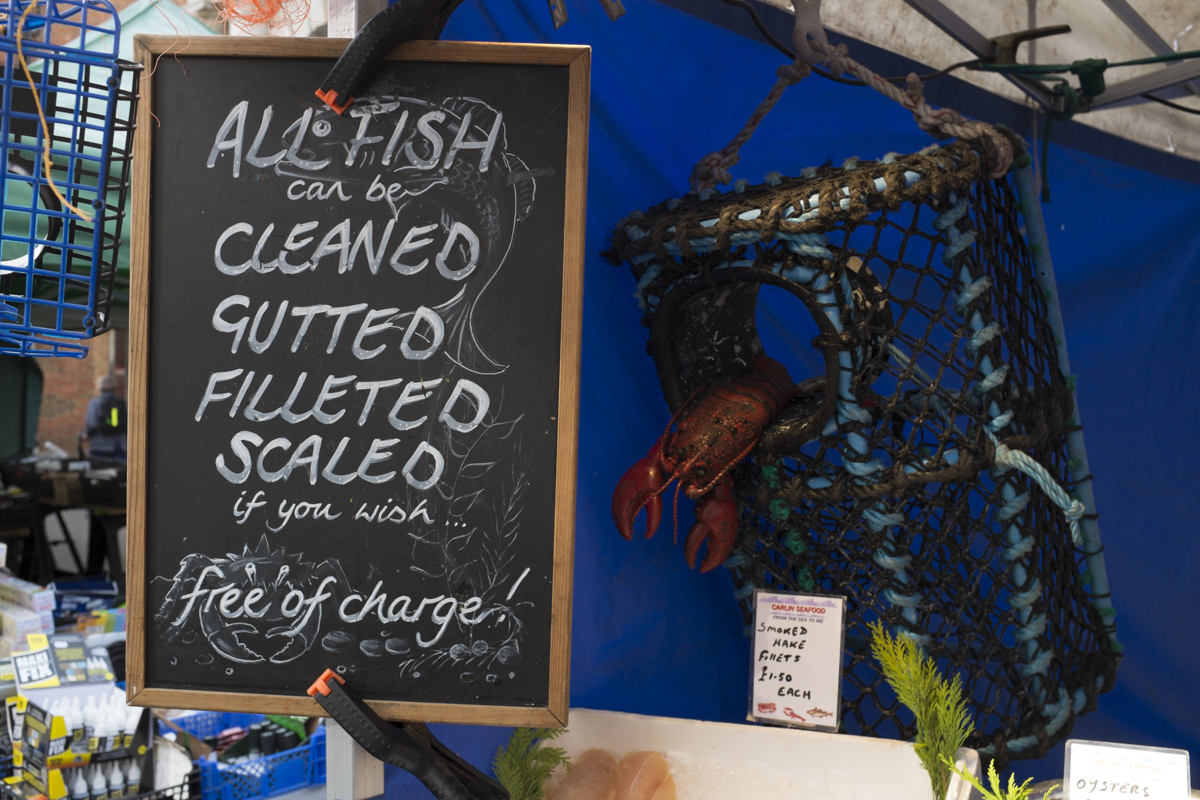 ALL FISH
can be
CLEANED
GUTTED
FILLETED
SCALED
if you wish...
free of charge!
CARLIN SEAFOOD
FROM THE SEA TO ME
SMOKED
HAKE
FILLETS
£1.50
EACH
OYSTERS
MAXI
FIX